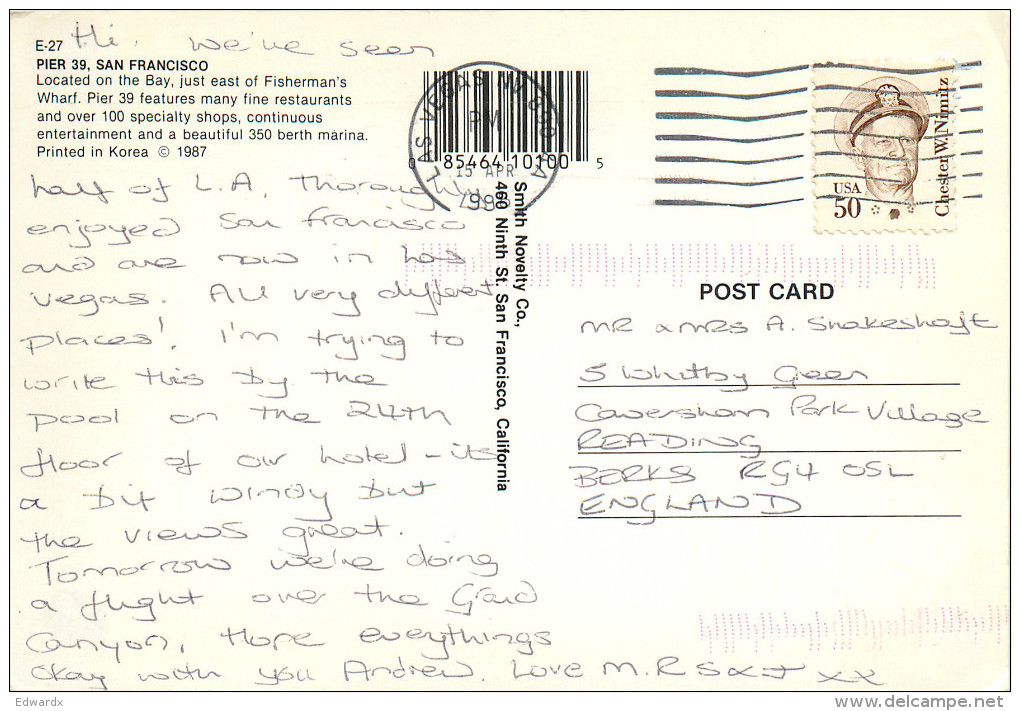 E-27 Hi, we've seen
PIER 39, SAN FRANCISCO
Located on the Bay, just east of Fisherman's
Wharf. Pier 39 features many fine restaurants
and over 100 specialty shops, continuous
entertainment and a beautiful 350 berth marina.
Printed in Korea © 1987
half of L.A, Thoroughly
enjoyed San Francisco
and are now in Las
Vegas. All very different
places! I'm trying to
write this by the
pool on the 24th
floor of our hotel - its
a bit windy but
the views great.
Tomorrow we're doing
a flight over the Grand
Canyon, Hope everythings
okay with you Andrew. Love M.R S & J xx
LAS VEGAS NV
PM
15 APR
0 85464 10100 5
Smith Novelty Co.,
460 Ninth St. San Francisco, California
USA
50
Chester W. Nimitz
POST CARD
MR & MRS A. Shakeshaft
5 Whitby Green
Caversham Park Village
READING
BERKS RG4 0SL
ENGLAND
Edwardx
delcampe.net